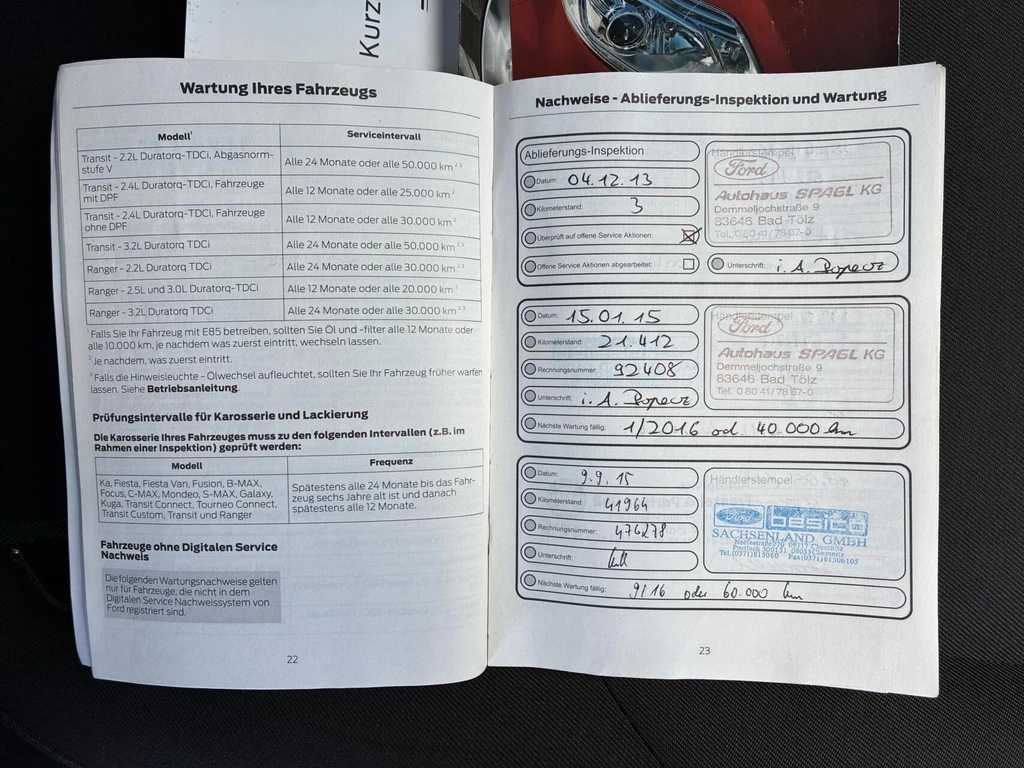 Kurz
Wartung Ihres Fahrzeugs
Modell¹ Serviceintervall
Transit - 2.2L Duratorq-TDCi, Abgasnorm-
stufe V
Alle 24 Monate oder alle 50.000 km ²,³
Transit - 2.4L Duratorq-TDCi, Fahrzeuge
mit DPF
Alle 12 Monate oder alle 25.000 km ²
Transit - 2.4L Duratorq-TDCi, Fahrzeuge
ohne DPF
Alle 12 Monate oder alle 30.000 km ²
Transit - 3.2L Duratorq TDCi Alle 24 Monate oder alle 50.000 km ²,³
Ranger - 2.2L Duratorq TDCi Alle 24 Monate oder alle 30.000 km ²,³
Ranger - 2.5L und 3.0L Duratorq-TDCi Alle 12 Monate oder alle 20.000 km ²
Ranger - 3.2L Duratorq TDCi Alle 24 Monate oder alle 30.000 km ²,³
¹ Falls Sie Ihr Fahrzeug mit E85 betreiben, sollten Sie Öl und -filter alle 12 Monate oder
alle 10.000 km, je nachdem was zuerst eintritt, wechseln lassen.
² Je nachdem, was zuerst eintritt.
³ Falls die Hinweisleuchte - Ölwechsel aufleuchtet, sollten Sie Ihr Fahrzeug früher warten
lassen. Siehe Betriebsanleitung.
Prüfungsintervalle für Karosserie und Lackierung
Die Karosserie Ihres Fahrzeuges muss zu den folgenden Intervallen (z.B. im
Rahmen einer Inspektion) geprüft werden:
Modell Frequenz
Ka, Fiesta, Fiesta Van, Fusion, B-MAX,
Focus, C-MAX, Mondeo, S-MAX, Galaxy,
Kuga, Transit Connect, Tourneo Connect,
Transit Custom, Transit und Ranger
Spätestens alle 24 Monate bis das Fahr-
zeug sechs Jahre alt ist und danach
spätestens alle 12 Monate.
Fahrzeuge ohne Digitalen Service
Nachweis
Die folgenden Wartungsnachweise gelten
nur für Fahrzeuge, die nicht in dem
Digitalen Service Nachweissystem von
Ford registriert sind.
22
Nachweise - Ablieferungs-Inspektion und Wartung
Ablieferungs-Inspektion
Datum: 04.12.13
Kilometerstand: 3
Überprüft auf offene Service Aktionen:
Offene Service Aktionen abgearbeitet:
Händlerstempel
Ford
Autohaus SPAGL KG
Demmeljochstraße 9
83646 Bad Tölz
Tel. 0 80 41/78 87-0
Unterschrift: i. A.
Datum: 15.01.15
Kilometerstand: 21.412
Rechnungsnummer: 92408
Unterschrift: i. A.
Händlerstempel
Ford
Autohaus SPAGL KG
Demmeljochstraße 9
83646 Bad Tölz
Tel. 0 80 41/78 87-0
Nächste Wartung fällig: 1/2016 od. 40.000 km
Datum: 9.9.15
Kilometerstand: 41964
Rechnungsnummer: 476278
Unterschrift:
Händlerstempel
Ford besico
SACHSENLAND GMBH
09117 Chemnitz
Postfach 300151 09033 Chemnitz
Tel.(0371)815060 Fax(0371)81506105
Nächste Wartung fällig: 9/16 oder 60.000 km
23